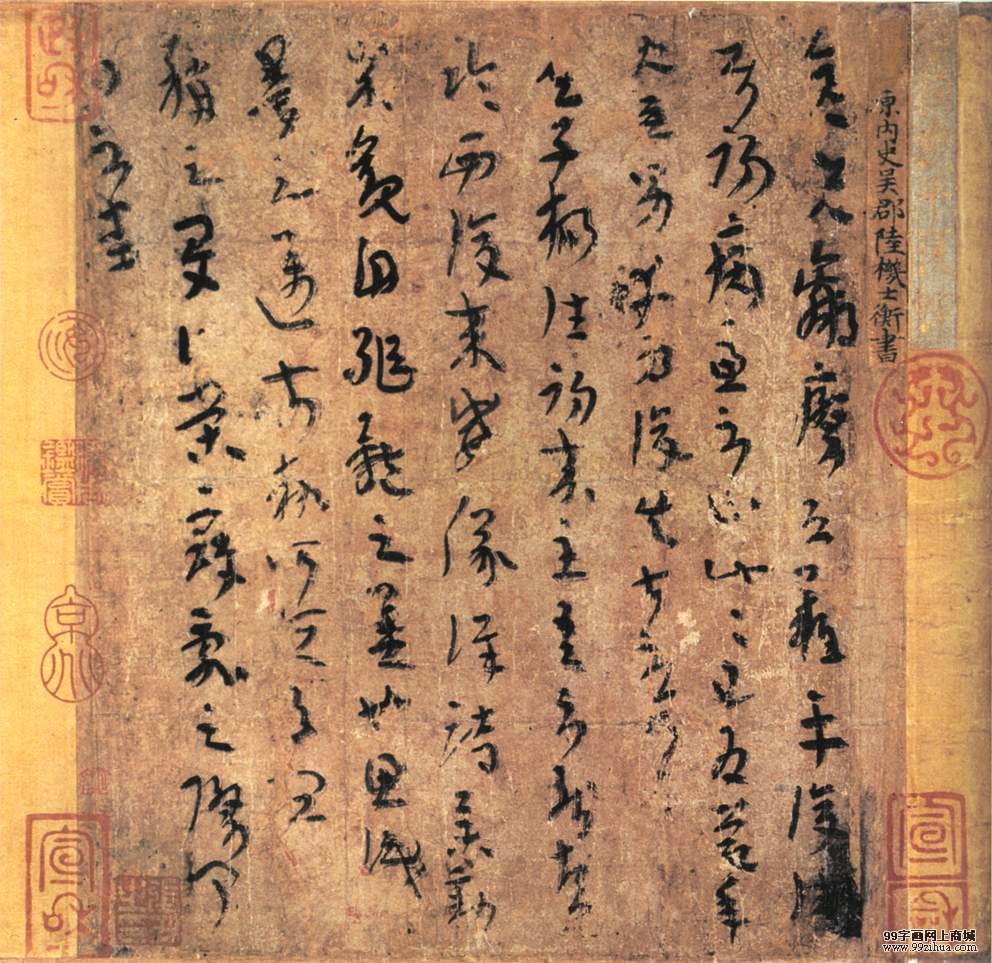 原内史吳郡陸機士衡書
彦先羸瘵恐難平復往屬
初病慮不止此此已為慶承
使唯男幸為復失前憂耳
吳子楊往初來主吾不能盡
臨西復來威儀詳跱舉動
成觀自軀體之美也思識
量之邁前執所恒有宜
稱之夏伯榮寇亂之際聞
問不悉
宣和
99字画网上商城
www.99zihua.com